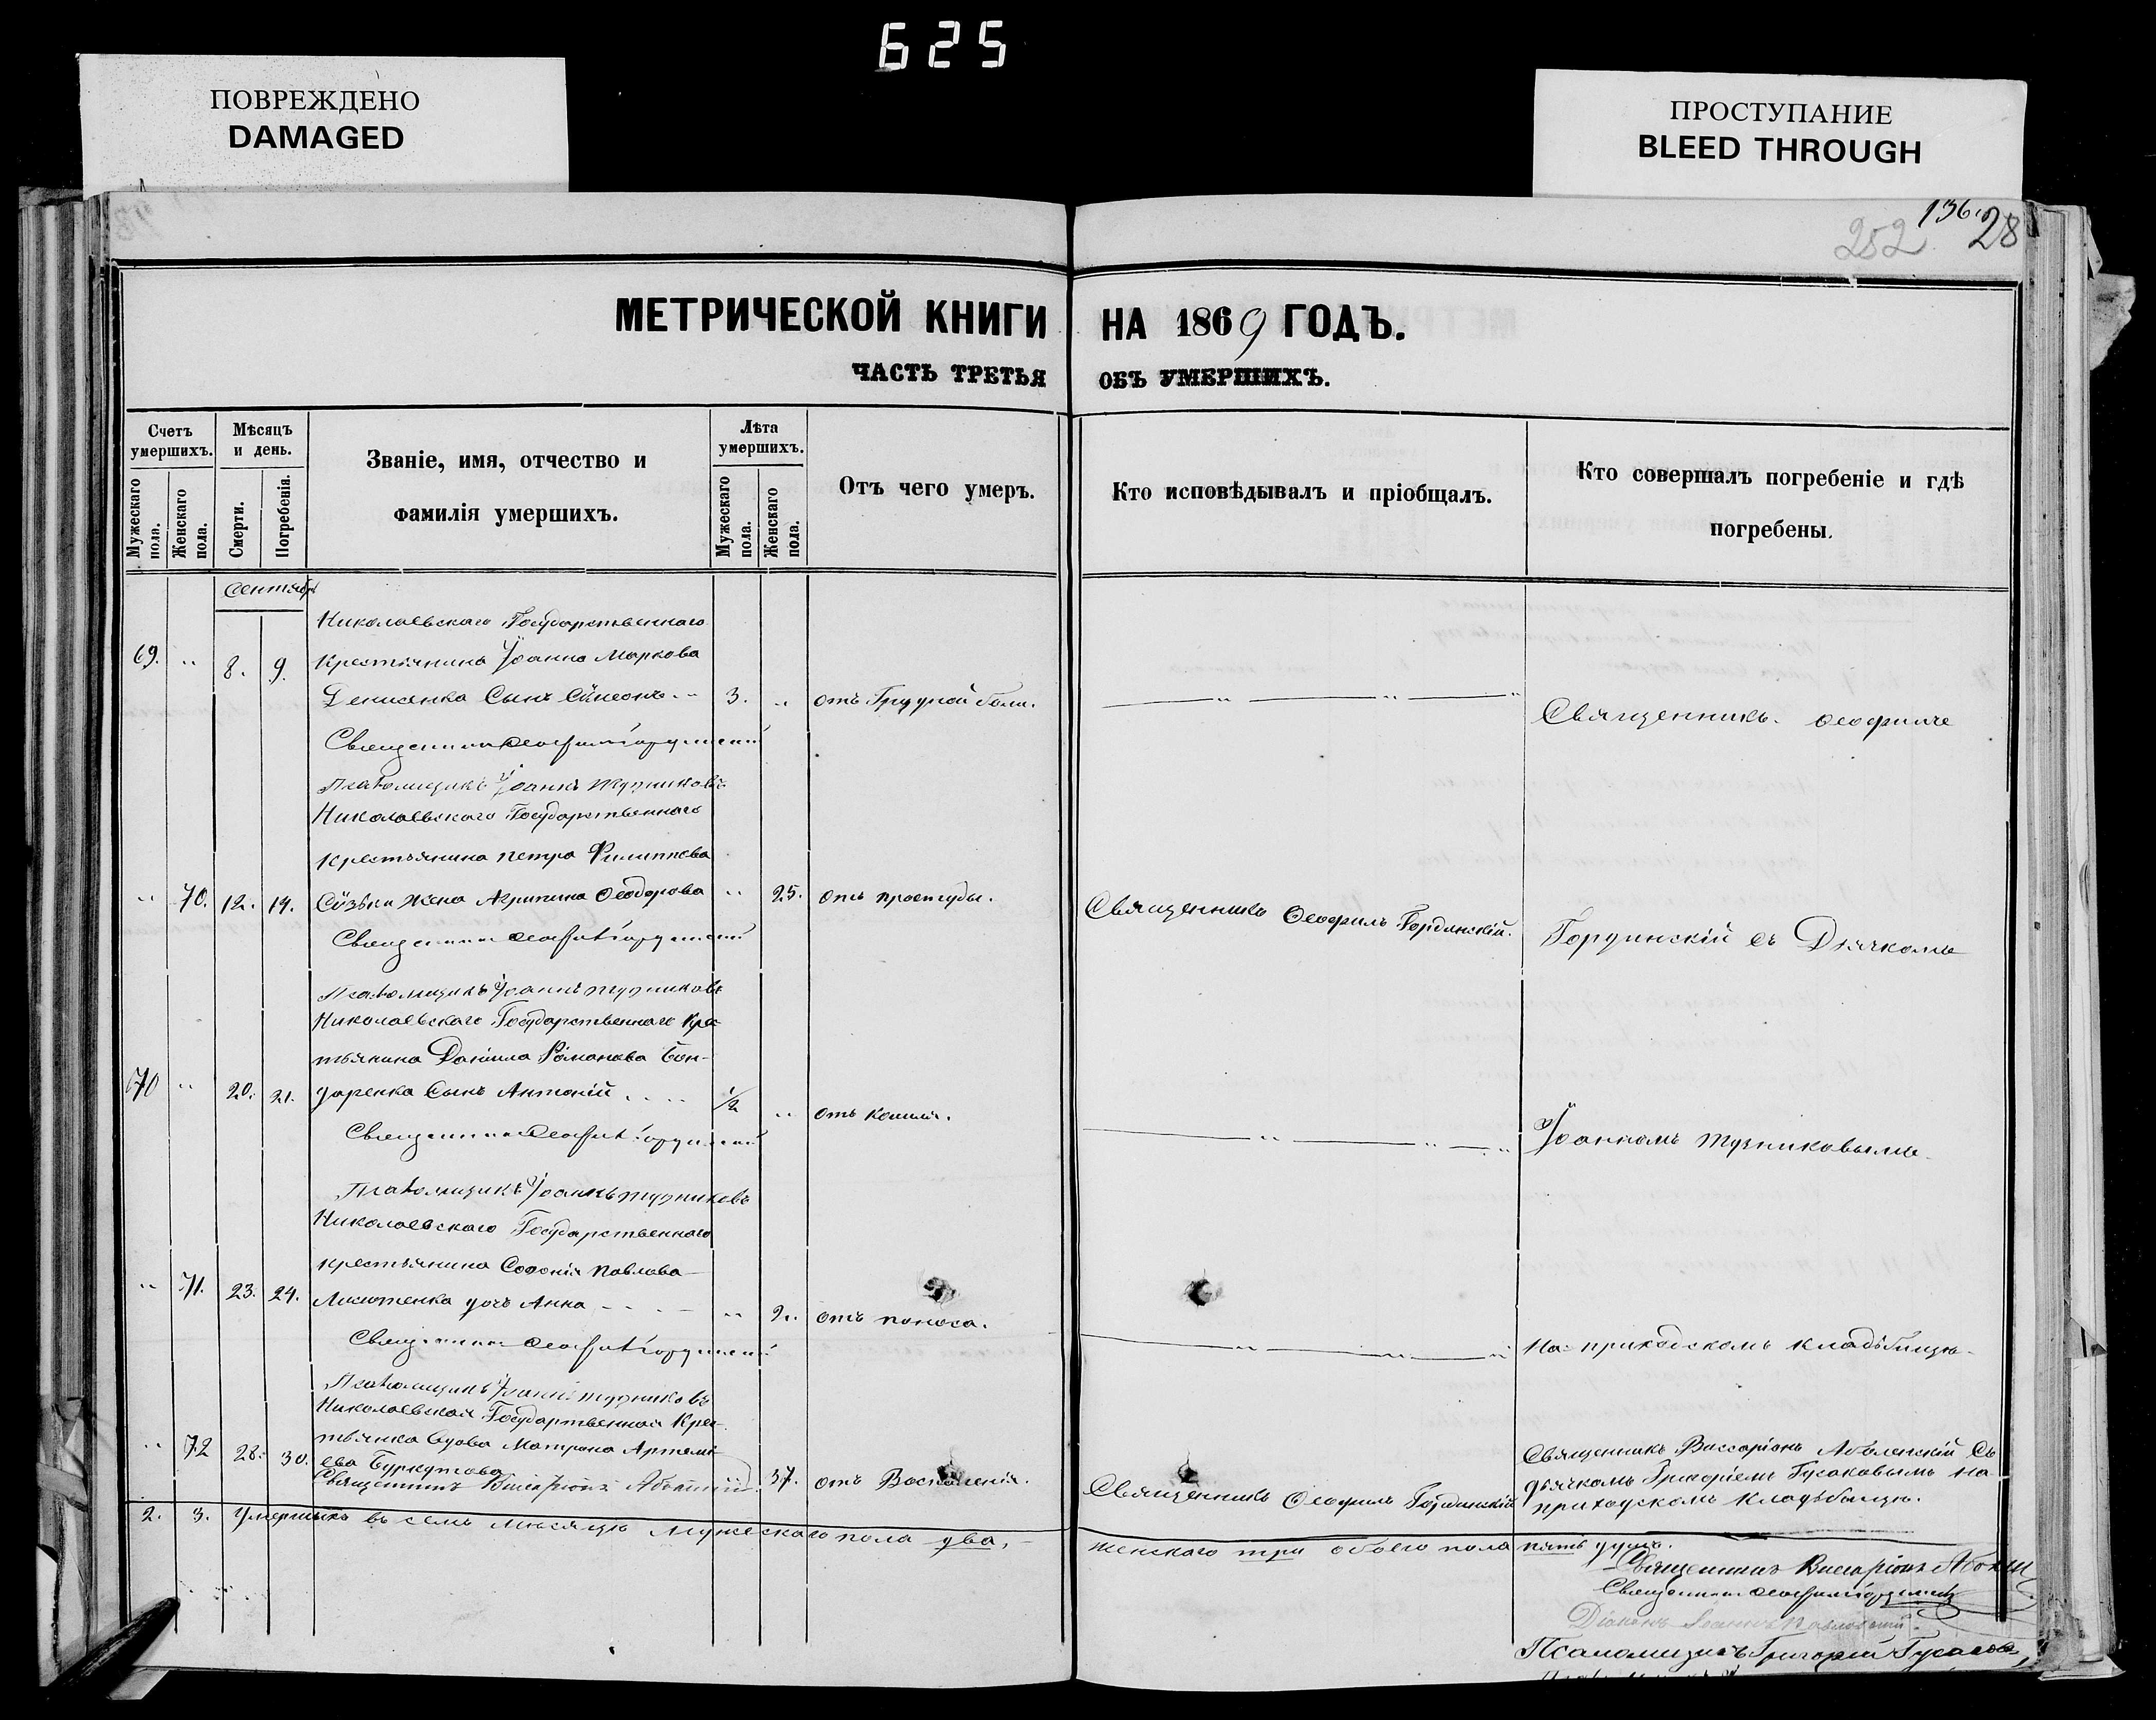 625
ПОВРЕЖДЕНО
DAMAGED
ПРОСТУПАНИЕ
BLEED THROUGH
136.
252. 28
МЕТРИЧЕСКОЙ КНИГИ НА 1869 ГОДЪ.
ЧАСТЬ ТРЕТЬЯ ОБЪ УМЕРШИХЪ.
Счетъ умершихъ.
Мужескаго пола.
Женскаго пола.
Мѣсяцъ и день.
Смерти.
Погребенія.
Званіе, имя, отчество и
фамилія умершихъ.
Лѣта умершихъ.
Мужескаго пола.
Женскаго пола.
Отъ чего умеръ.
Кто исповѣдывалъ и пріобщалъ.
Кто совершалъ погребеніе и гдѣ
погребены.
Сентябрь
Николаевскаго Государственнаго
69. " 8. 9. Крестьянина Іоанна Маркова
Денисенка Сынъ Сѵмеонъ 3. " отъ Грудной боли.
Священникъ Ѳеофилъ Гординскій
Псаломщикъ Іоаннъ
Николаевскаго Государственнаго
Крестьянина Петра Филиппова
" 70. 12. 14. Жена Агрипина Ѳеодорова " 25. отъ простуды. Священникъ Ѳеофилъ Гординскій.
Священникъ Ѳеофилъ Гординскій
Псаломщикъ Іоаннъ
Николаевскаго Государственнаго Крес-
тьянина Даніила Романова Бон-
70 " 20. 21. даренка Сынъ Антоній 1/2 " отъ кашля.
Священникъ Ѳеофилъ Гординскій
Псаломщикъ Іоаннъ
Николаевскаго Государственнаго
крестьянина Софонія Павлова
" 71. 23. 24. дочь Анна " 2. отъ поноса.
Священникъ Ѳеофилъ Гординскій
Псаломщикъ Іоаннъ
Николаевская Государственная Крес-
тьянка вдова Матрона Артемі-
" 72 28. 30. ева 37. отъ Воспаленія. Священникъ Ѳеофилъ Гординскій
Священникъ Виссаріонъ
Священникъ Ѳеофилъ
Гординскій съ Дьячкомъ
Іоанномъ
На приходскомъ кладбищѣ.
Священникъ Виссаріонъ съ
дьячкомъ Григоріемъ Гусаковымъ на
приходскомъ кладбищѣ.
2. 3. Умершихъ въ семъ мѣсяцѣ мужескаго пола два, женскаго три обоего пола пять душъ.
Священникъ Виссаріонъ
Священникъ Ѳеофилъ Гординскій
Діаконъ Іоаннъ
Псаломщикъ Григорій Гусаковъ